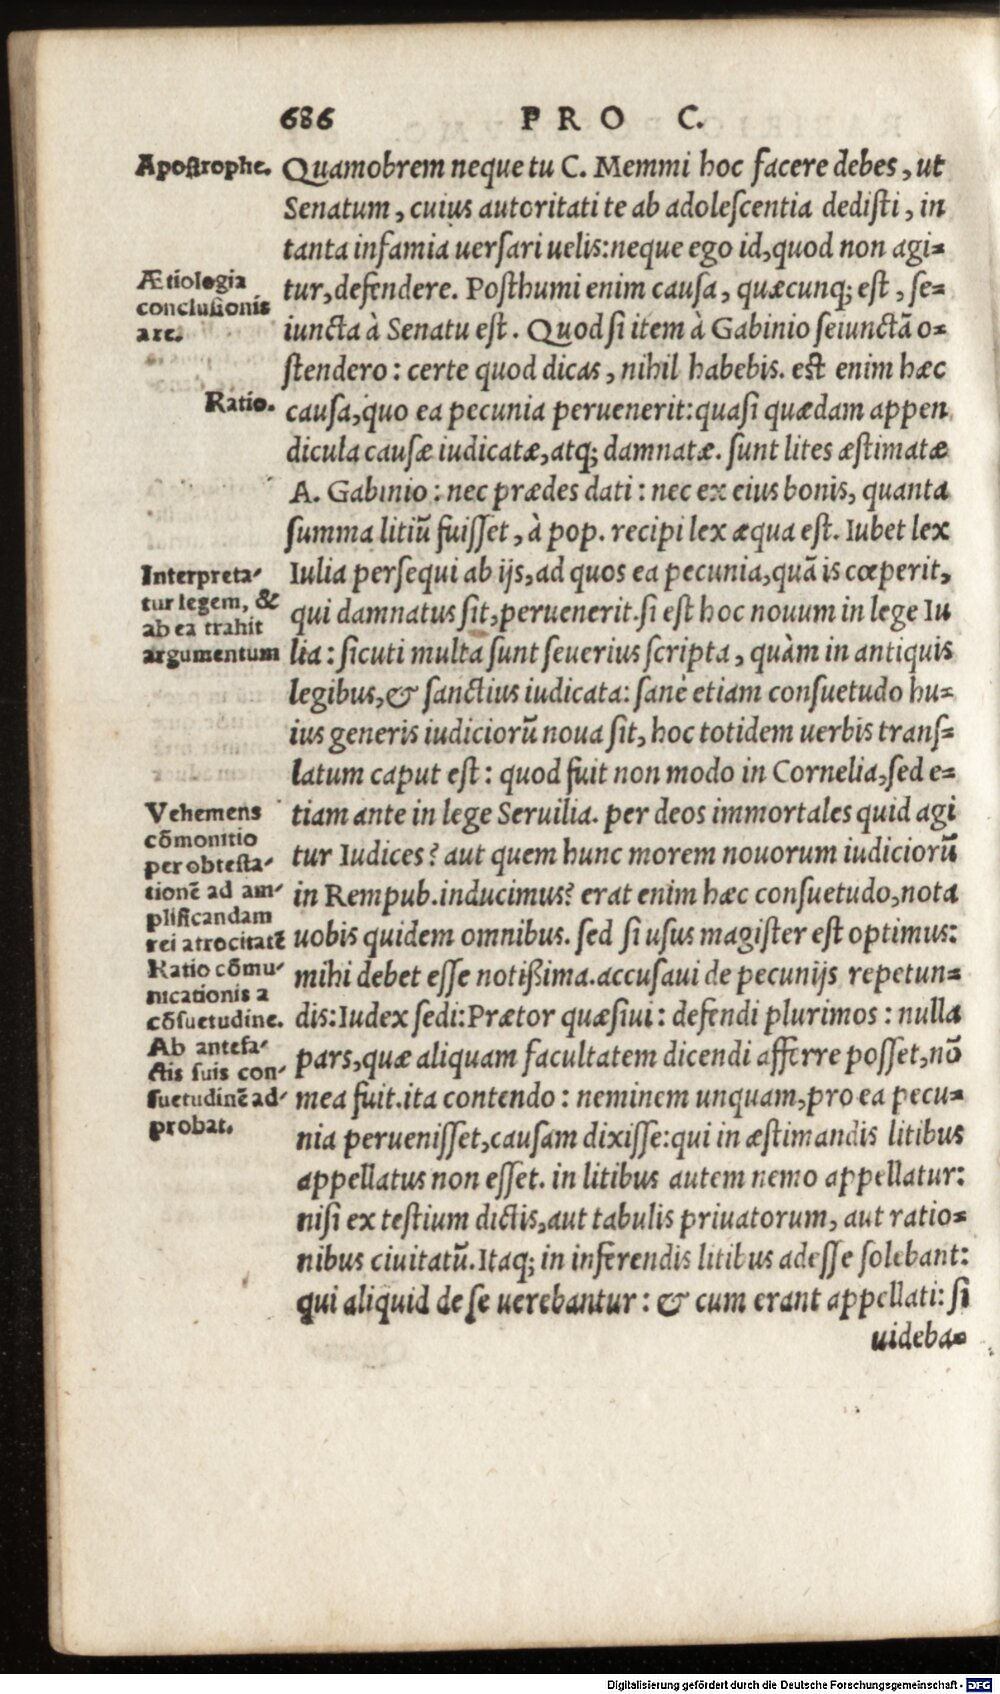 686 PRO C.
Apostrophe.
Quamobrem neque tu C. Memmi hoc facere debes, ut
Senatum, cuius autoritati te ab adolescentia dedisti, in
tanta infamia uersari uelis: neque ego id, quod non agi-
Ætiologia
conclusionis
are.
tur, defendere. Posthumi enim causa, quæcunq; est, se-
iuncta à Senatu est. Quod si item à Gabinio seiunctā o-
stendero: certe quod dicas, nihil habebis. est enim hæc
Ratio.
causa, quo ea pecunia peruenerit: quasi quædam appen
dicula causæ iudicatæ, atq; damnatæ. sunt lites æstimatæ
A. Gabinio: nec prædes dati: nec ex eius bonis, quanta
summa litiū fuisset, à pop. recipi lex æqua est. Iubet lex
Interpreta-
tur legem, &
ab ea trahit
argumentum
Iulia persequi ab ijs, ad quos ea pecunia, quā is cœperit,
qui damnatus sit, peruenerit. si est hoc nouum in lege Iu
lia: sicuti multa sunt seuerius scripta, quàm in antiquis
legibus, & sanctius iudicata: sanè etiam consuetudo hu-
ius generis iudiciorū noua sit, hoc totidem uerbis trans-
latum caput est: quod fuit non modo in Cornelia, sed e-
Vehemens
cōmonitio
per obtesta-
tionē ad am-
plificandam
rei atrocitatē
tiam ante in lege Seruilia. per deos immortales quid agi
tur Iudices? aut quem hunc morem nouorum iudiciorū
in Rempub. inducimus? erat enim hæc consuetudo, nota
uobis quidem omnibus. sed si usus magister est optimus:
Ratio cōmu-
nicationis a
cōsuetudine.
mihi debet esse notißima. accusaui de pecunijs repetun-
dis: Iudex sedi: Prætor quæsiui: defendi plurimos: nulla
Ab antefa-
ctis suis con-
suetudinē ad-
probat.
pars, quæ aliquam facultatem dicendi afferre posset, nō
mea fuit. ita contendo: neminem unquam, pro ea pecu-
nia peruenisset, causam dixisse: qui in æstimandis litibus
appellatus non esset. in litibus autem nemo appellatur:
nisi ex testium dictis, aut tabulis priuatorum, aut ratio-
nibus ciuitatū. Itaq; in inferendis litibus adesse solebant:
qui aliquid de se uerebantur: & cum erant appellati: si
uideba-
Digitalisierung gefördert durch die Deutsche Forschungsgemeinschaft - DFG